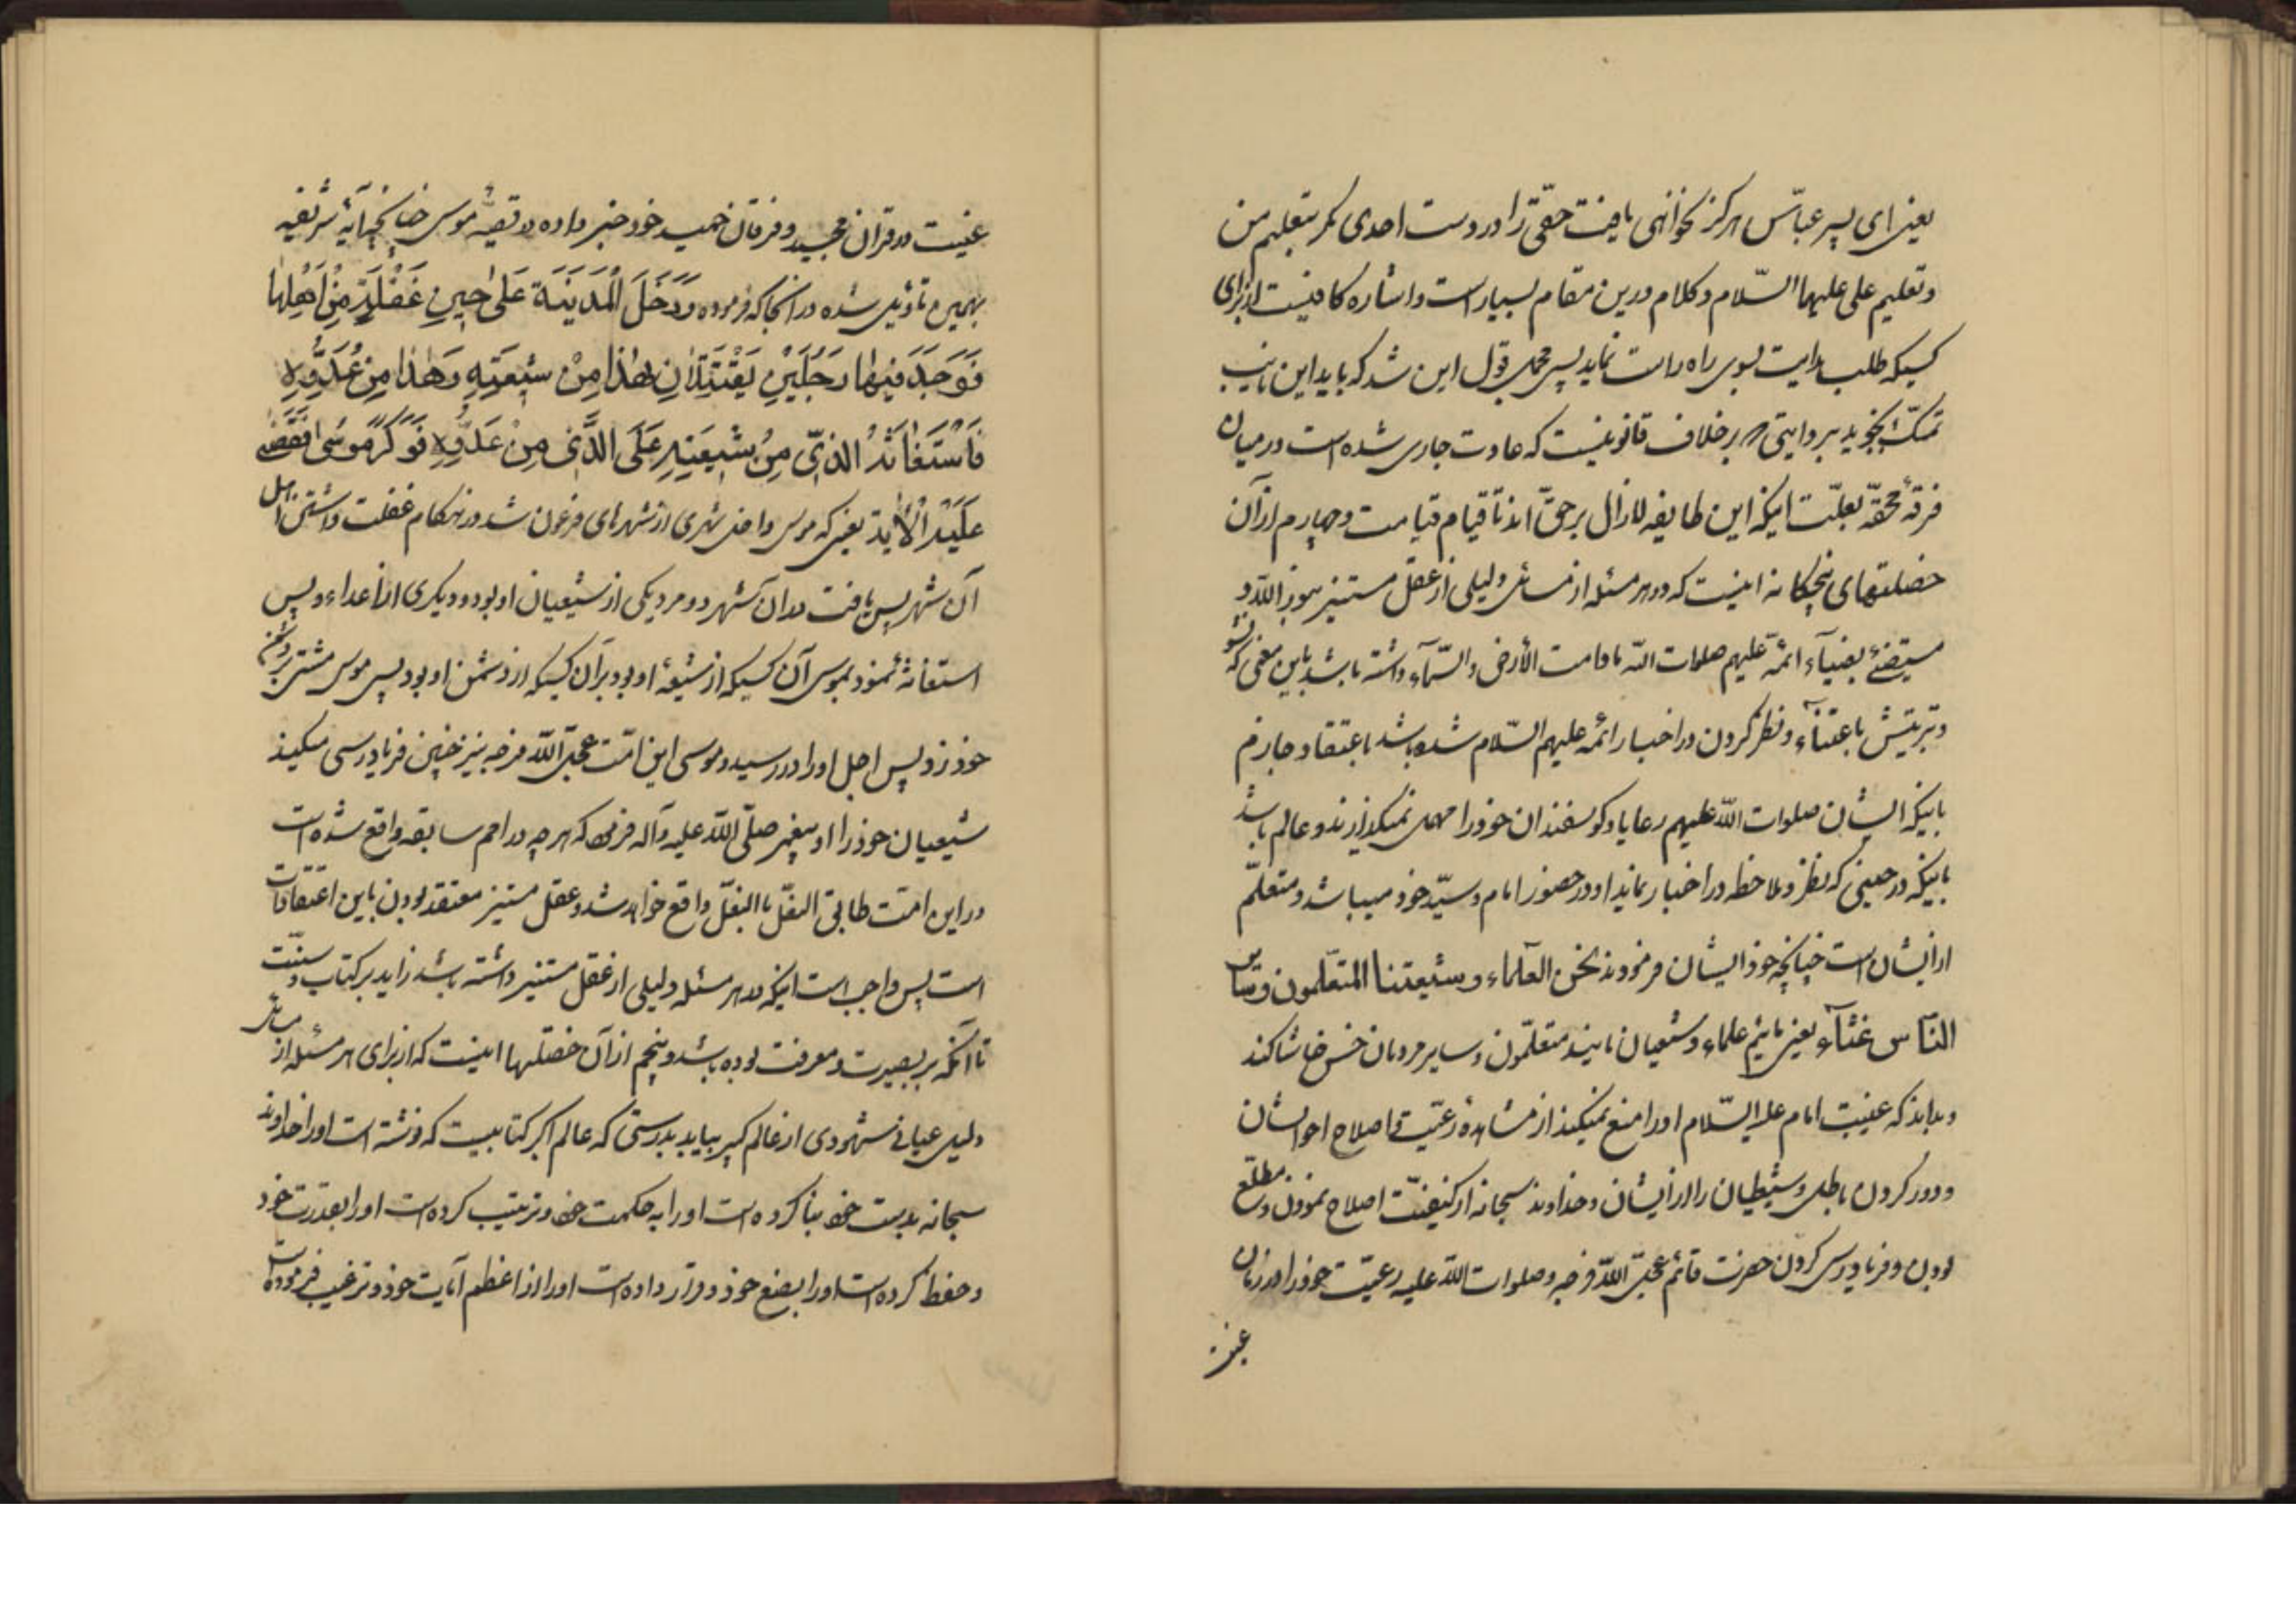 یعنی ای پسر عباس هرکز نخواهی یافت حقی را در دست احدی مکر بتعلیم من
و تعلیم علی علیهما السّلام و کلام درین مقام بسیار است و اشاره کافیست از برای
کسیکه طلب هدایت بسوی راه راست نماید پس مجمل قول این شد که باید این نایب
تمسّک نجوید بروایتی که بر خلاف قانونیست که عادت جاری شده است در میان
فرقهٔ محقّه بعلّت اینکه این طایفه لازال بر حقّ اند تا قیام قیامت و چهارم از آن
خصلتهای پنجکانه اینست که در هر مسئله از مسائل دلیلی از عقل مستنیر بنور الله و
مستضیٔ بضیآء ائمّه علیهم صلوات الله مادامت الأرض و السّمآء داشته باشد باین معنی که نشو
و تربیتش باعتنآء و نظر کردن در اخبار ائمّه علیهم السّلام شده باشد باعتقاد جازم
باینکه ایشان صلوات الله علیهم رعایا و کوسفندان خود را مهمل نمیکذارند و عالم باشد
باینکه در حینی که نظر و ملاحظه در اخبار نماید او در حضور امام و سیّد خود میباشد و متعلّم
از ایشان است چنانچه خود ایشان فرمودند نحن العلماء و شیعتنا المتعلّمون و سایر
النّاس غثآء یعنی مائیم علماء و شیعیان مایند متعلّمون و سایر مردمان خس و خاشاکند
و بداند که غیبت امام علیه السّلام او را منع نمیکند از مشاهدهٔ رعیّت و اصلاح احوالشان
و دور کردن باطل و شیطان را از ایشان و خداوند سبحانه از کیفیّت اصلاح نمودن و مطلع
بودن و فریادرسی کردن حضرت قائم عجّل الله فرجه و صلوات الله علیه رعیّت خود را در زمان
غیبت
غیبت در قران مجید و فرقان حمید خود خبر داده در قصّهٔ موسی چنانچه آیهٔ شریفه
بهمین تاویل شده در انجا که فرموده وَدَخَلَ الْمَدینَةَ عَلیٰ حینِ غَفْلَةٍ مِنْ اَهْلِهٰا
فَوَجَدَ فیهٰا رَجُلَیْنِ یَقْتَتِلاٰنِ هٰذا مِنْ شیعَتِهِ وَهٰذا مِنْ عَدُوِّهِ
فَاسْتَغاثَهُ الَّذی مِنْ شیعَتِهِ عَلَی الَّذی مِنْ عَدُوِّهِ فَوَکَزَهُ مُوسیٰ فَقَضیٰ
عَلَیْهِ الْاٰیة یعنی که موسی داخل شهری از شهرهای فرعون شد در هنکام غفلت داشتن اهل
آن شهر پس یافت در آن شهر دو مرد یکی از شیعیان او بود و دیکری از اعداء او پس
استغاثه نمود بموسی آن کسیکه از شیعهٔ او بود بر آن کسیکه از دشمن او بود پس موسی مشتی بر دشمن
خود زد پس اجل او را در رسید و موسی این امّت عجّل الله فرجه نیز چنین فریادرسی میکند
شیعیان خود را او پیغمبر صلّی الله علیه و آله فرمود که هر چه در امم سابقه واقع شده است
در این امّت طابق النعل بالنعل واقع خواهد شد و عقل مستنیر معتقد بودن باین اعتقادات
است پس واجب است اینکه در هر مسئله دلیلی از عقل مستنیر داشته باشد زاید بر کتاب و سنّت
تا آنکه بر بصیرت و معرفت بوده باشد و پنجم از آن خصلتها اینست که از برای هر مسئله از مسائل
دلیل عیانی شهودی از عالم کبیر بیابد بدرستی که عالم اکبر کتابیست که نوشته است او را خداوند
سبحانه بدست خود بنا کرده است او را به حکمت خود و ترتیب کرده است او را بقدرت خود
و حفظ کرده است او را بصنع خود و قرار داده است او را از اعظم آیات خود و ترغیب فرموده است